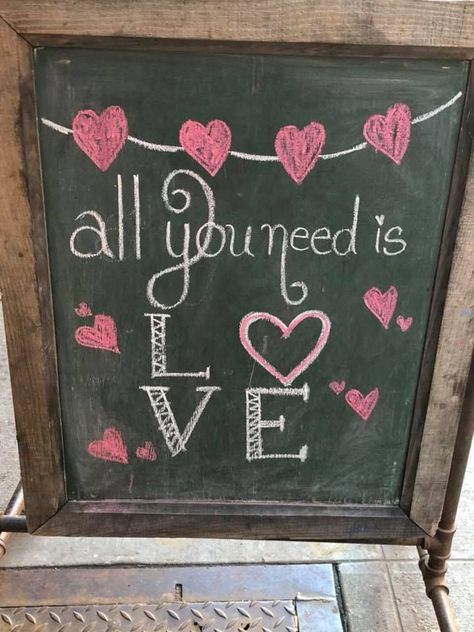 all you need is
LOVE